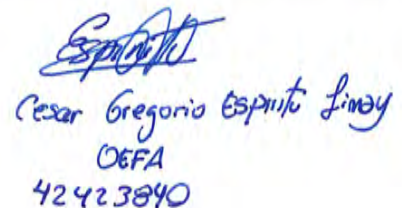 Espiritu
Cesar Gregorio Espiritu Limay
OEFA
42423840